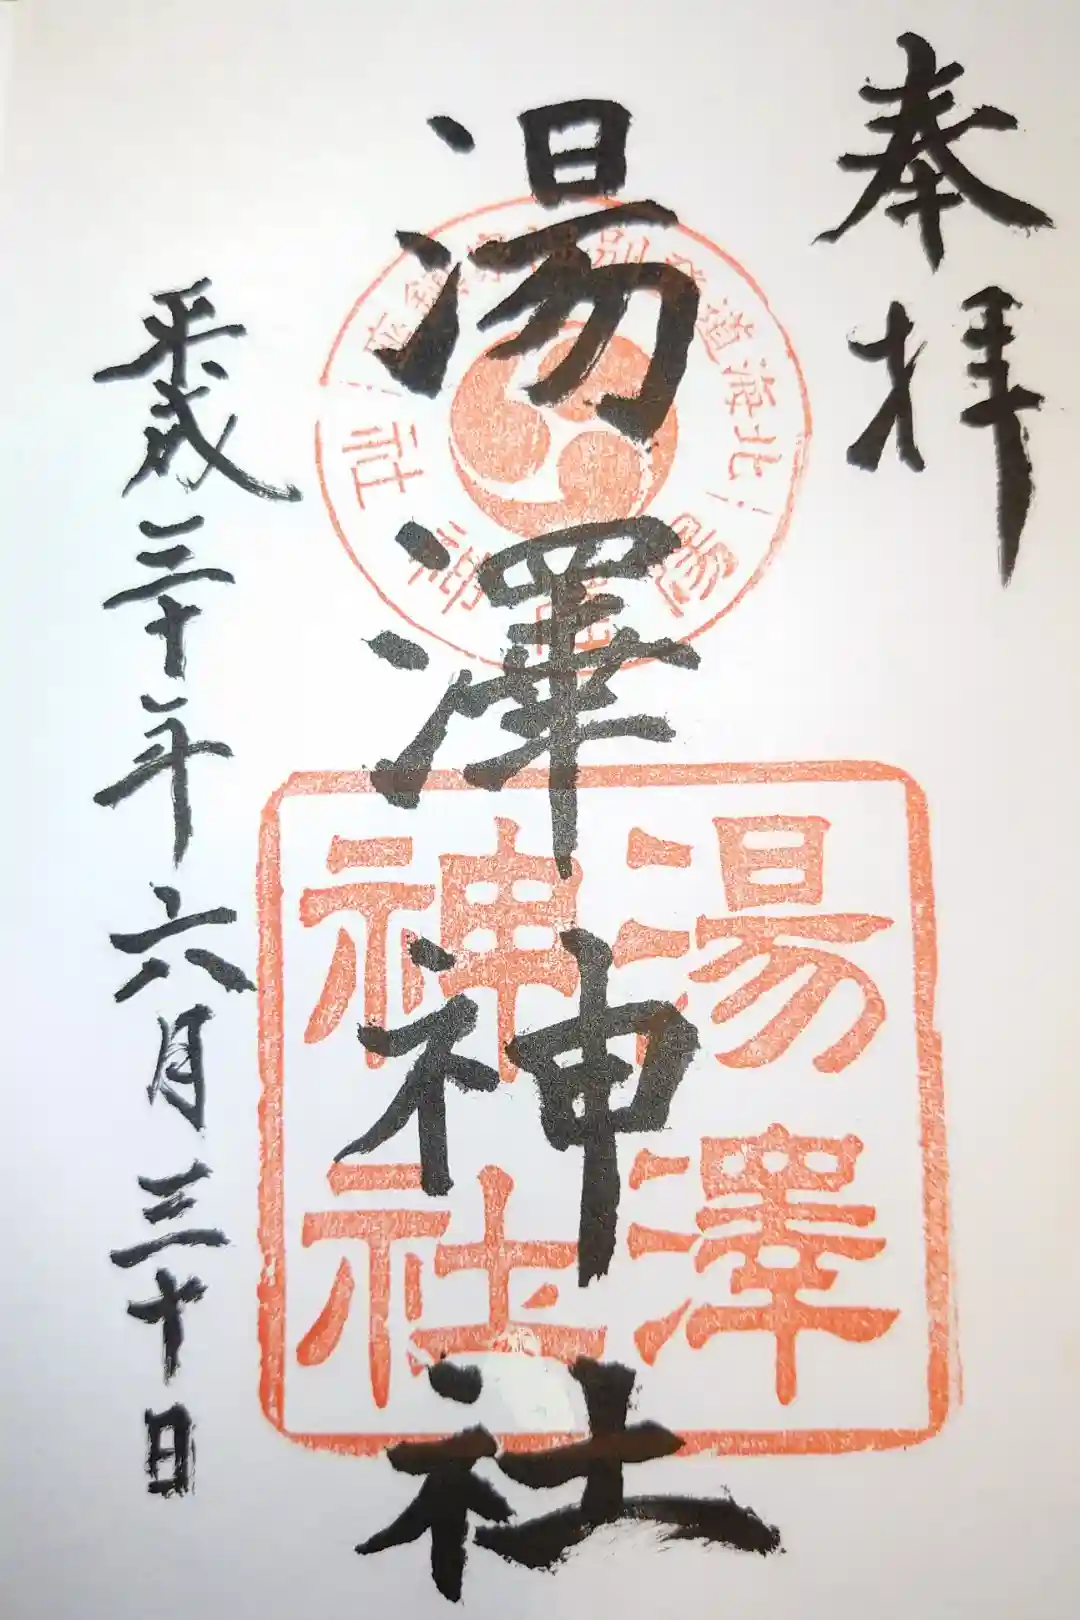 奉拝
湯澤神社
湯澤
神社
北海道登別温泉鎮座
湯澤神社
平成三十年六月三十日